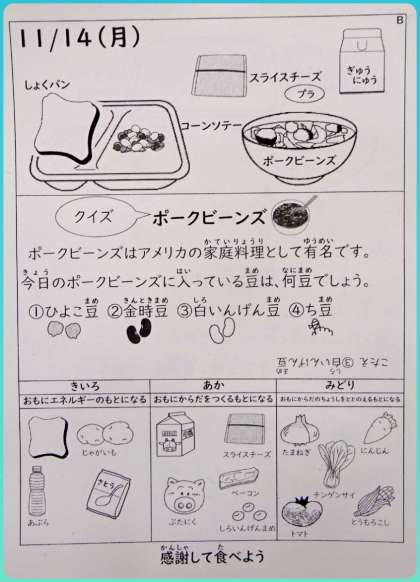 B
11/14(月)
しょくパン
スライスチーズ
プラ
ぎゅう
にゅう
コーンソテー
ポークビーンズ
クイズ
ポークビーンズ
かていりょうり ゆうめい
ポークビーンズはアメリカの家庭料理として有名です。
きょう はい まめ なにまめ
今日のポークビーンズに入っている豆は、何豆でしょう。
まめ きんときまめ しろ まめ まめ
①ひよこ豆 ②金時豆 ③白いんげん豆 ④ち豆
しろ まめ
こたえ ③白いんげん豆
きいろ
おもにエネルギーのもとになる
あか
おもにからだをつくるもとになる
みどり
おもにからだのちょうしをととのえるもとになる
じゃがいも
あぶら
さとう
スライスチーズ
ベーコン
ぶたにく
しろいんげんまめ
たまねぎ
にんじん
チンゲンサイ
トマト
とうもろこし
かんしゃ た
感謝して食べよう